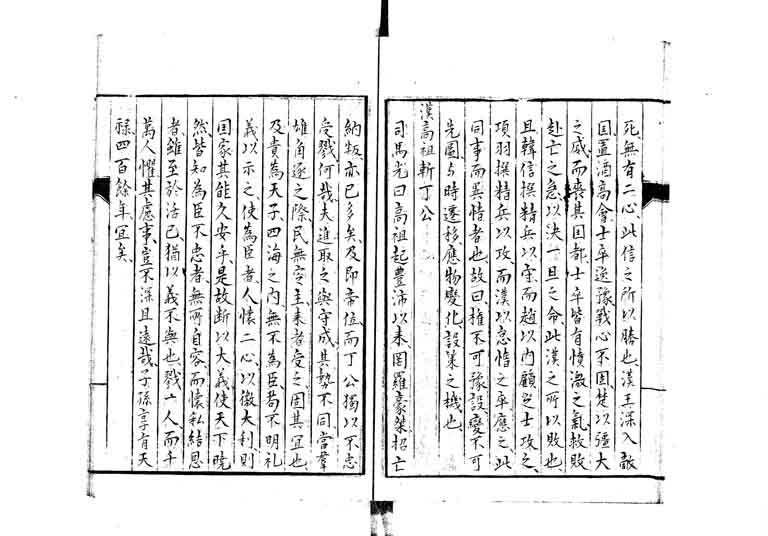 死無有二心此信之所以勝也漢王深入敵
国置酒高會士卒逸豫戰心不固楚以彊大
之威而喪其国都士卒皆有憤激之氣救敗
赴亡之急以決一旦之命此漢之所以敗也
且韓信撰精兵以守而趙以内顧之士攻之
項羽撰精兵以攻而漢以怠惰之卒應之此
同事而異情者也故曰権不可豫設變不可
先圖与時遷移應物變化設策之機也
漢高祖斬丁公
司馬光曰高祖起豊沛以来罔羅豪桀招亡
納叛亦已多矣及即帝位而丁公獨以不忠
受戮何哉夫進取之與守成其勢不同當羣
雄角逐之際民無定主来者受之固其宜也
及貴為天子四海之内無不為臣苟不明礼
義以示之使為臣者人懷二心以徼大利則
国家其能久安乎是故断以大義使天下暁
然皆知為臣不忠者無所自容而懐私結恩
者雖至於活己猶以義不與也戮一人而千
萬人懼其慮事豈不深且遠哉子孫享有天
禄四百餘年宜矣